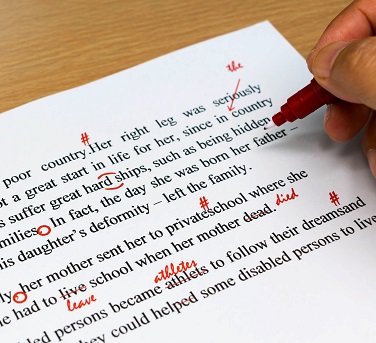 the
#
poor country.Her right leg was seriously
ot a great start in life for her, since in country
s suffer great hard ships, such as being hidden
milies. In fact, the day she was born her father –
is daughter's deformity – left the family.
#
#
ly, her mother sent her to privateschool where she
e had to live school when her mother dead. died
leave
athletes
led persons became athlets to follow their dreamsand
ey could helped some disabled persons to live